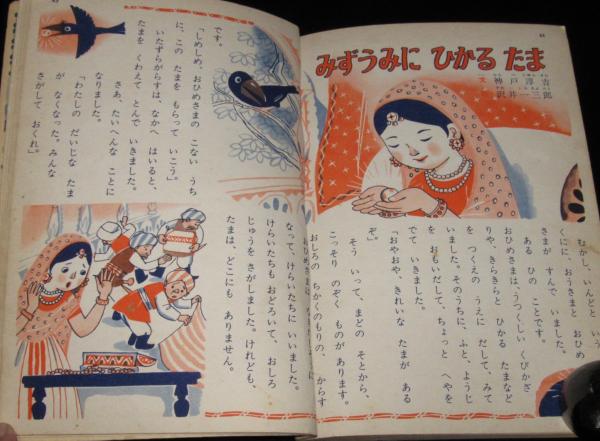 みずうみに ひかる たま
文 神戸淳吉
沢井一三郎
むかし、いんどと いう
くにに、おうさまと おひめ
さまが すんで いました。
ある ひの ことです。
おひめさまは、うつくしい くびかざ
りや、きらきらと ひかる たまなど
を つくえの うえに だして、みて
いました。そのうちに、ふと、ようじ
を おもいだして、ちょっと へやを
でて いきました。
「おやおや、きれいな たまが ある
ぞ。」
そう いって、まどの そとから、
こっそり のぞく ものが あります。
おしろの ちかくのもりの、からす
です。
「しめしめ、おひめさまの こない うち
に、この たまを もらって いこう」
いたずらがらすは、なかへ はいると、
たまを くわえて とんで いきました。
さあ、たいへんな ことに
なりました。
「わたしの だいじな たま
が なくなった。みんな
さがして おくれ」
なって、けらいたちに いいました。
けらいたちも おどろいて、おしろ
じゅうを さがしました。けれども、
たまは、どこにも ありません。